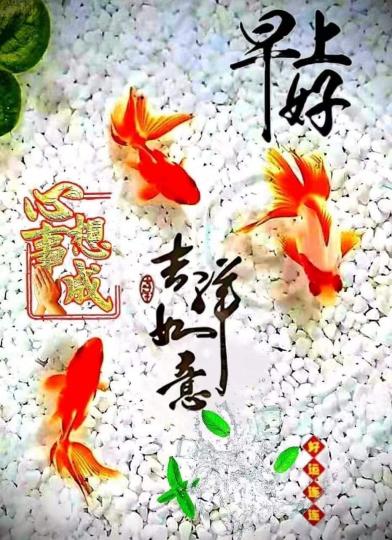 早上好
心想事成
吉祥如意
好运连连